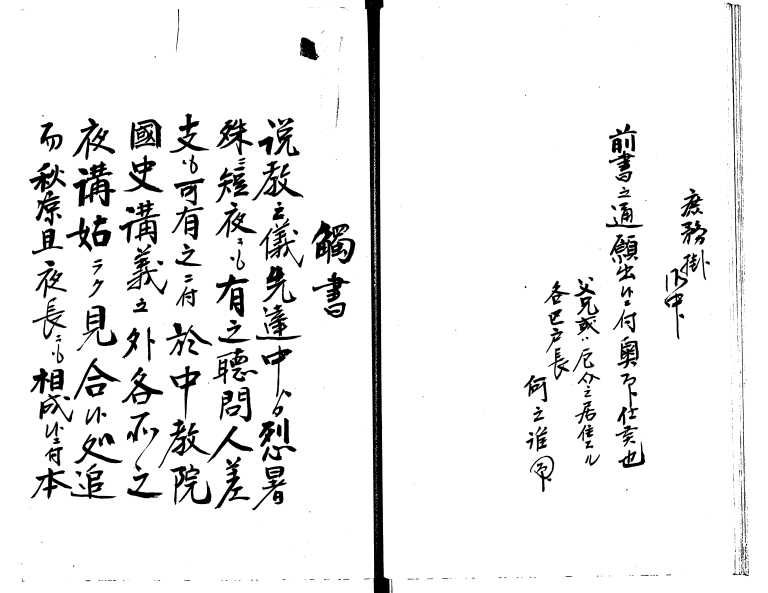 庶務掛
御中
前書之通願出候ニ付奥印仕候也
父兄或ハ厄介之居住スル
各区戸長
何之誰㊞
觸書
説教之儀先達中ゟ烈暑
殊ニ短夜ニも有之聴問人差
支も可有之ニ付於中教院
國史講義之外各所之
夜講姑ラク見合候処追
而秋涼且夜長ニも相成候ニ付本